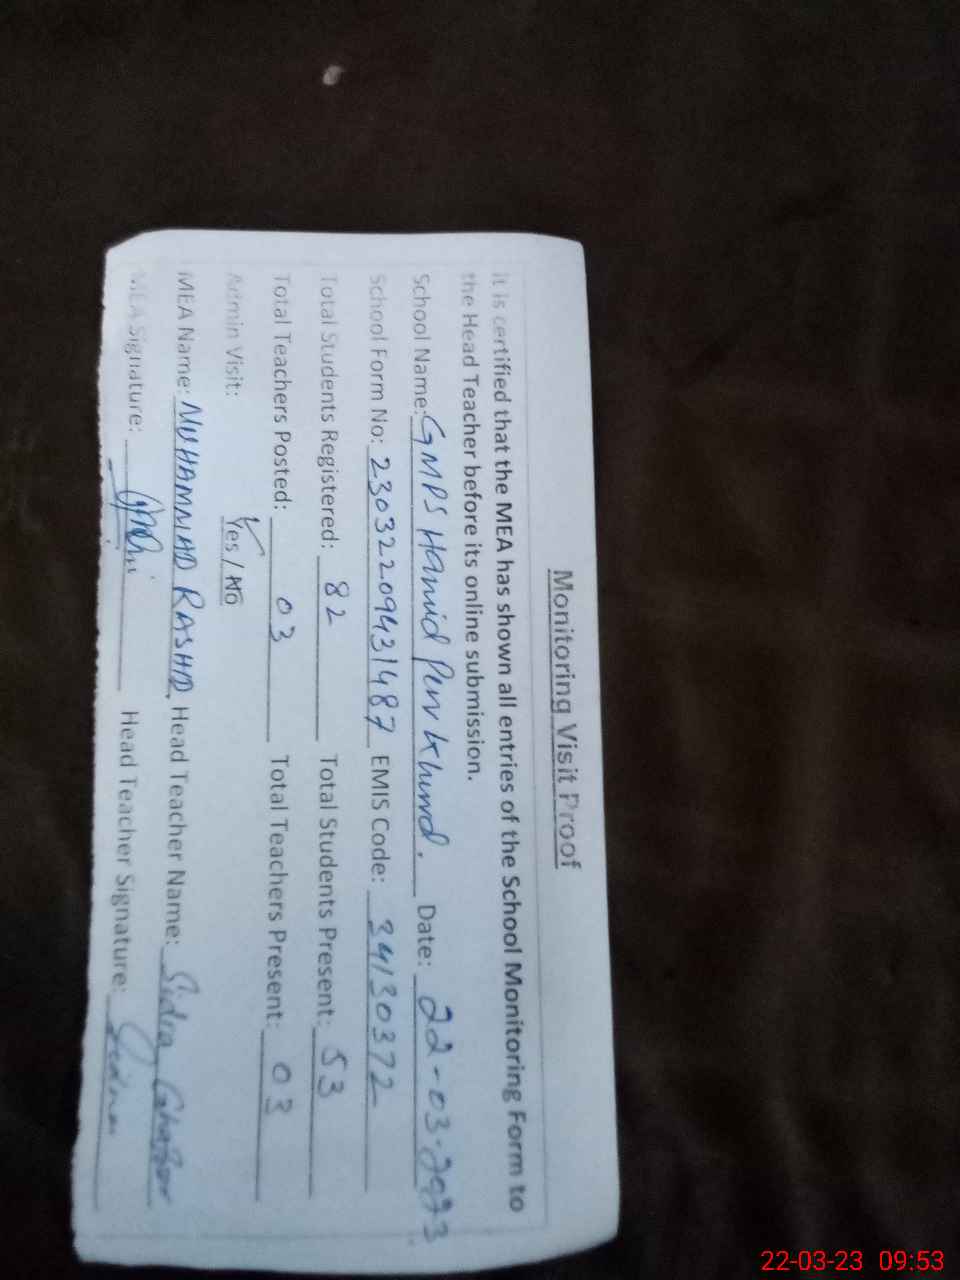 Monitoring Visit Proof
It is certified that the MEA has shown all entries of the School Monitoring Form to
the Head Teacher before its online submission.
School Name: GMPS Hamid Pur Khurd. Date: 22-03-2023
School Form No: 23032209431487 EMIS Code: 34130372
Total Students Registered: 82 Total Students Present: 53
Total Teachers Posted: 03 Total Teachers Present: 03
Admin Visit: Yes / No
MEA Name: MUHAMMAD RASHID Head Teacher Name: Sidra
MEA Signature: Head Teacher Signature:
22-03-23 09:53